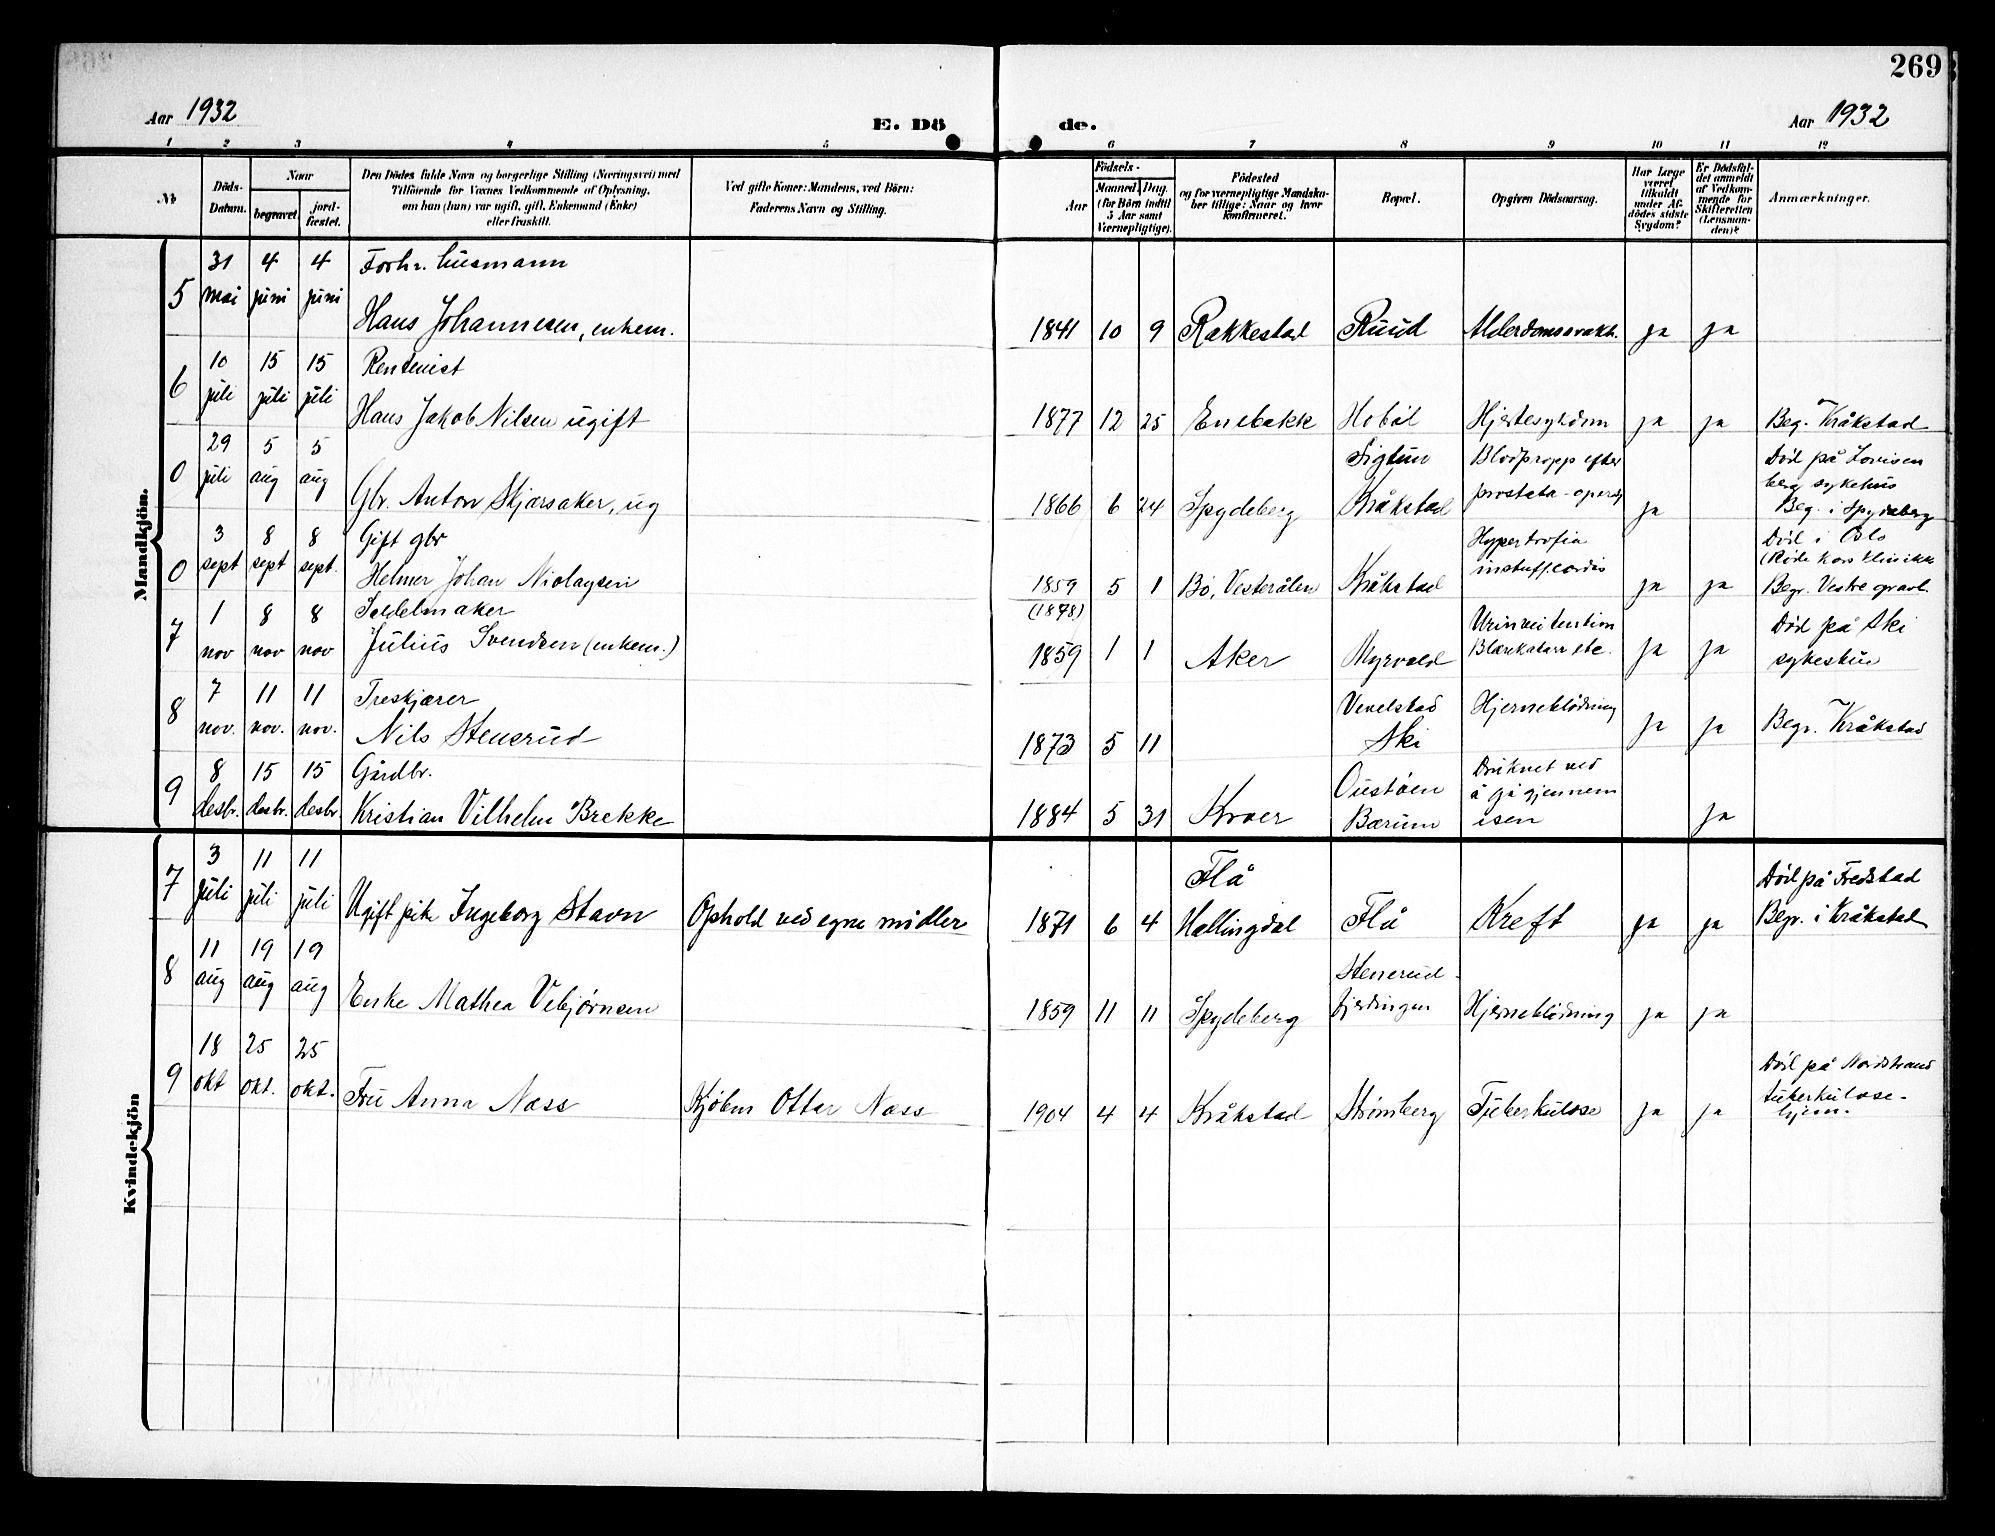 269
Aar 1932
E. Dö
de.
Aar 1932
1 2 3 4 5 6 7 8 9 10 11 12
№
Döds-Datum.
Naar
begravet.
jord-fæstet.
Den Dödes fulde Navn og borgerlige Stilling (Næringsvei) med
Tilföiende for Voxnes Vedkommende af Oplysning,
om han (hun) var ugift, gift, Enkemand (Enke)
eller fraskilt.
Ved gifte Koner: Mandens, ved Börn:
Faderens Navn og Stilling.
Födsels-
Aar
Maaned. Dag.
(for Börn indtil
5 Aar samt
Værnepligtige).
Födested
og for værnepligtige Mandska-
ber tillige: Naar og hvor
konfirmeret.
Bopæl.
Opgiven Dödsaarsag.
Har Læge
været
tilkaldt
under Af-
dödes sidste
Sygdom?
Er Dödsfal-
det anmeldt
af Vedkom-
mende for
Skifteretten
(Lensman-
den)?
Anmærkninger.
Mandkjön.
5 31 mai 4 juni 4 juni Forhv. husmann
Hans Johannesen, enkem. 1841 10 9 Rakkestad Ruud ja ja
6 10 juli 15 juli 15 juli Rentenist
Hans Jakob Nilsen ugift 1877 12 25 Enebakk Hobøl Hjertesykdom ja ja Beg. Kråkstad
0 29 juli 5 aug 5 aug Gbr. Anton Skjærsaker, ug 1866 6 24 Spydeberg Sigtun
Kråkstad Blodpropp efter
prostata-opera ja Død på Lovisen
berg sykehus
Beg. i Spydeberg
0 3 sept 8 sept 8 sept. Gift gbr
Helmer Johan Nicolaysen 1859 5 1 Bø, Vesterålen Kråkstad Hypertrofia
ja ja Død i Oslo
(Røde Kors Klinikk
Begr. Vestre gravl.
7 1 nov 8 nov 8 nov Sadelmaker
Julius Svendsen (enkem.) (1848)
1859 1 1 Aker Myrvold Urinretention
Blærekatarr etc. ja ja Død på Ski
8 7 nov. 11 nov. 11 nov. Treskjærer
Nils Stenerud 1873 5 11 Vevelstad
Ski Hjerneblödning ja ja Begr. Kråkstad
9 8 desbr. 15 desbr. 15 desbr. Gårdbr.
Kristian Vilhelm Brekke 1884 5 31 Kroer Oustøen
Bærum Druknet ved
å gå gjennem
isen ja
Kvindekjön
7 3 juli 11 juli 11 juli Ugift pike Ingeborg Stavn Ophold ved egne midler 1871 6 4 Flå
Hallingdal Flå Kreft ja ja Død på Fredstad
Begr. i Kråkstad
8 11 aug 19 aug 19 aug Enke Mathea Vebjørnsen 1859 11 11 Spydeberg Stenerud-
fjerdingen Hjerneblödning ja ja
9 18 okt 25 okt. 25 okt. Fru Anna Næss Kjøbm Ottar Næss 1904 4 4 Kråkstad Strømberg Tuberkulose ja ja Død på Nordstrand
tuberkulose-
hjem.